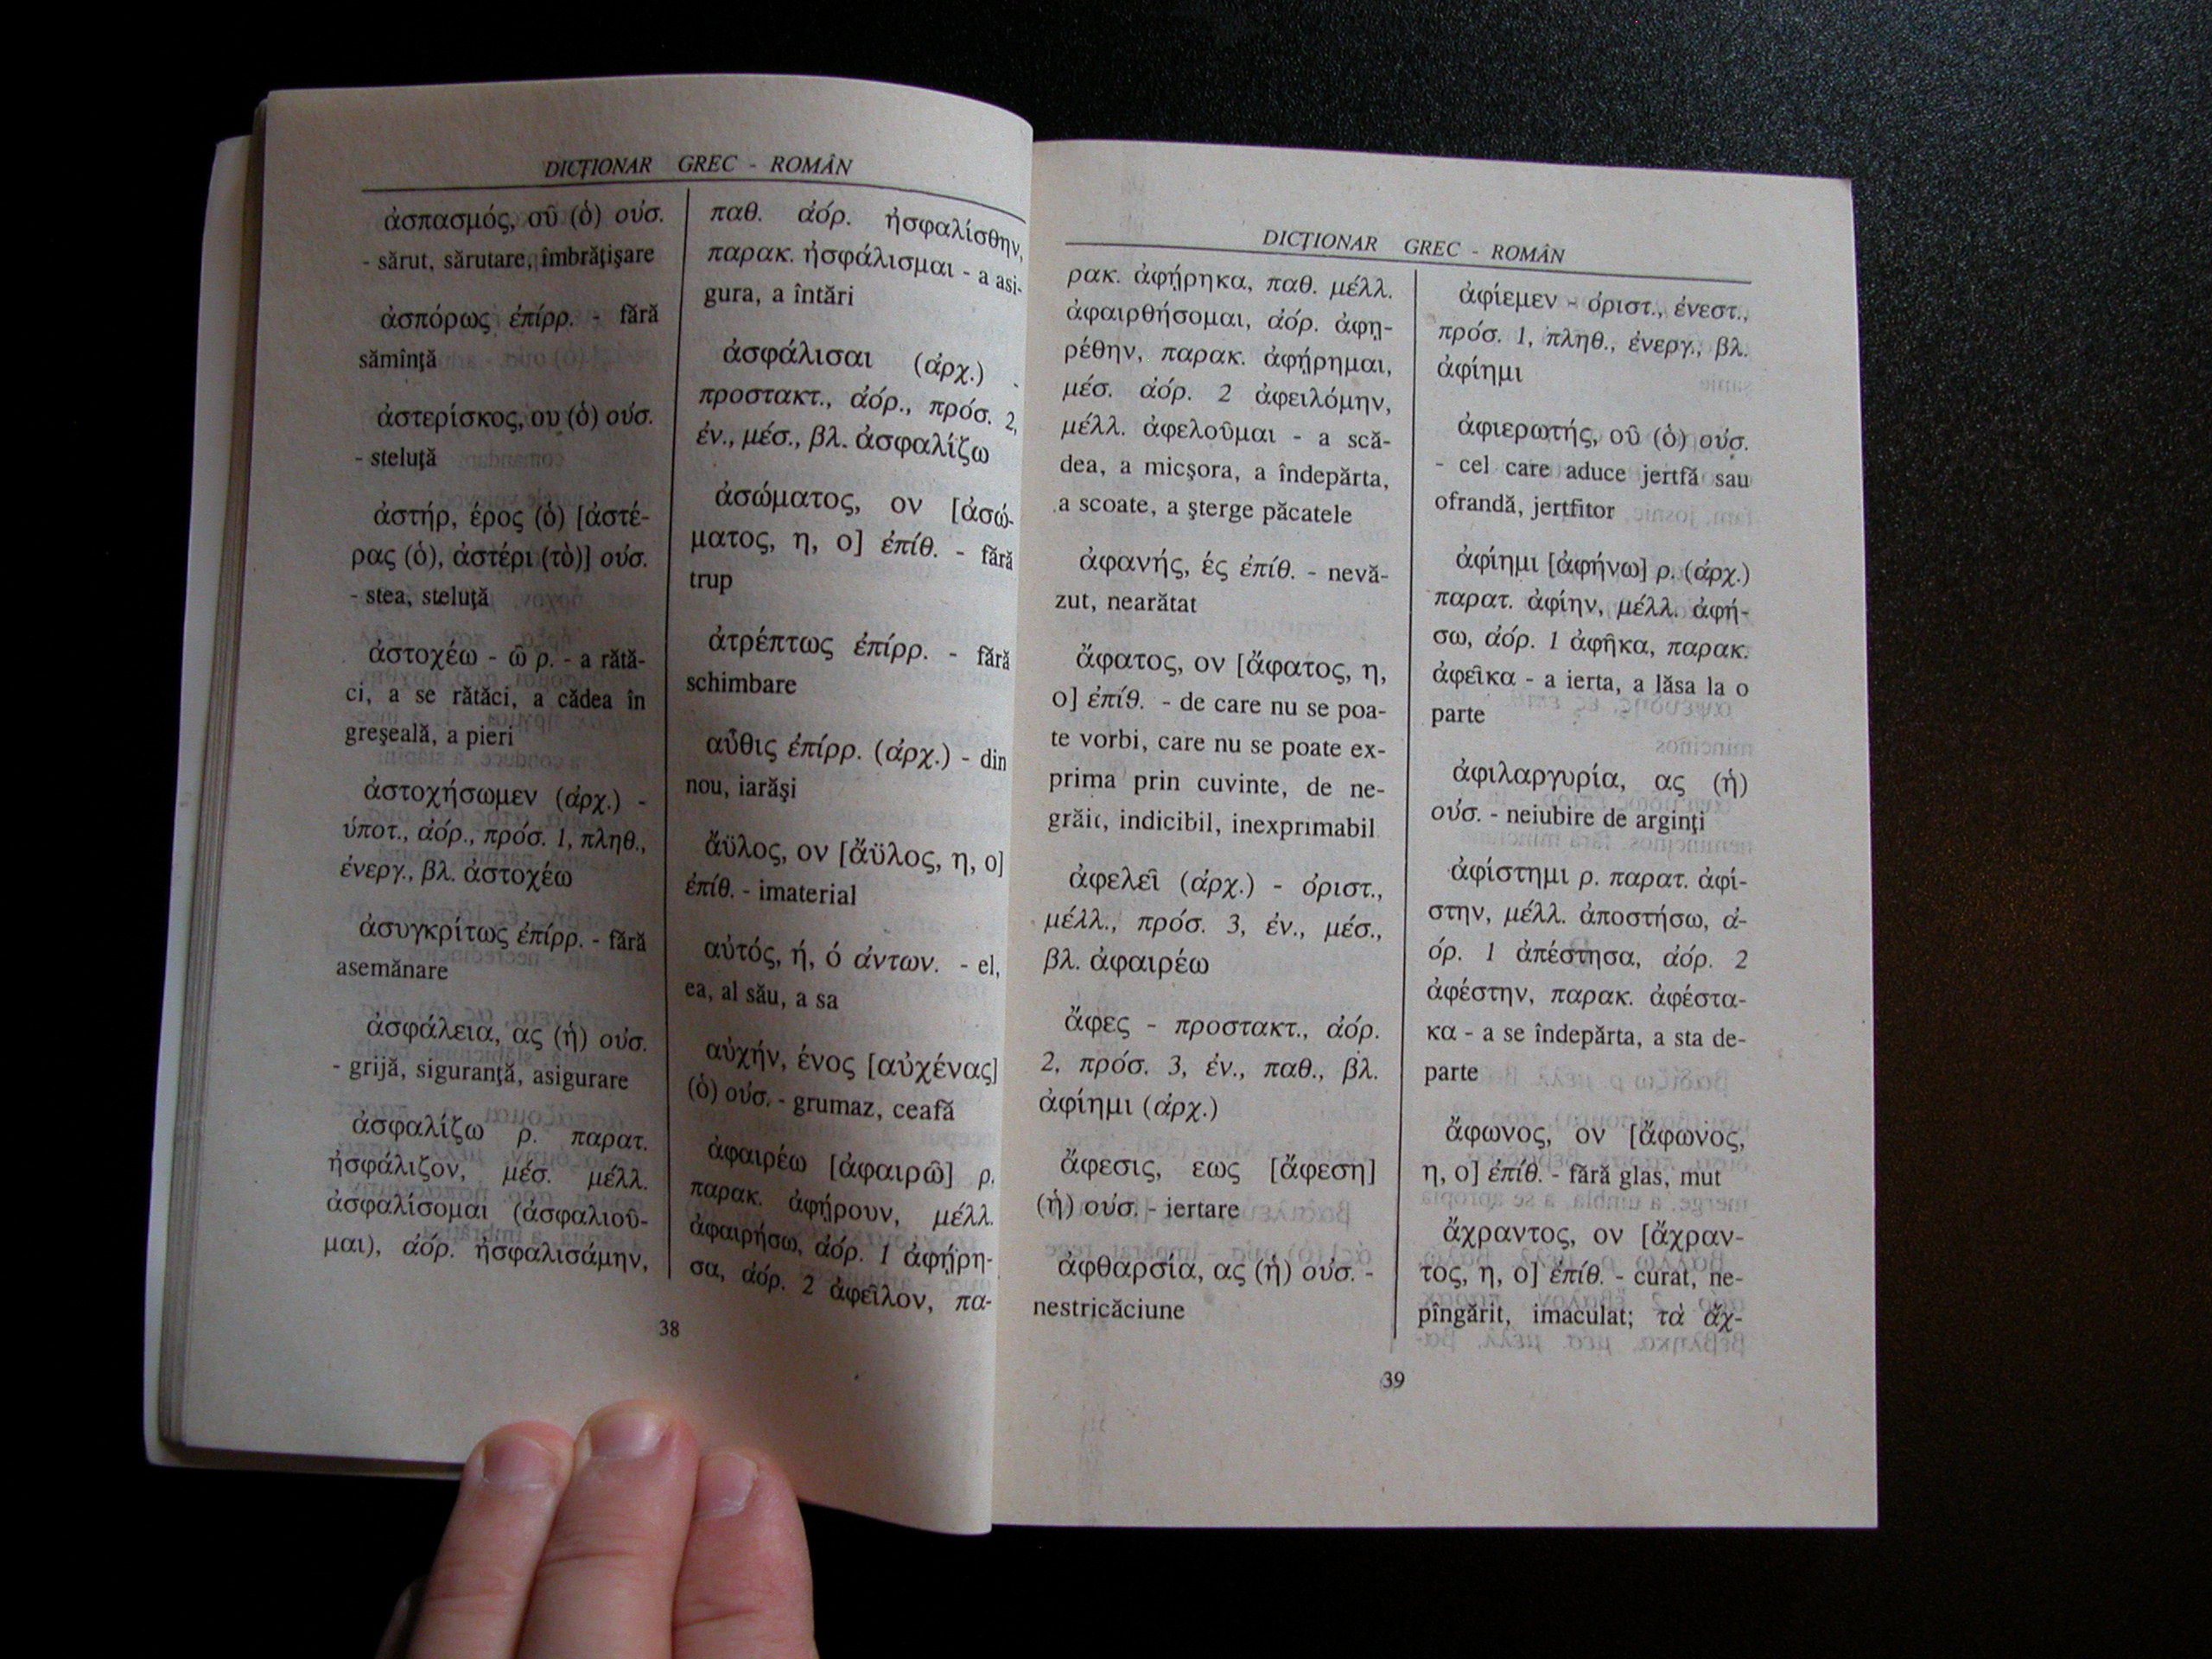 DICŢIONAR GREC - ROMÂN
ἀσπασμός, οῦ (ὁ) οὐσ.
- sărut, sărutare, îmbrăţişare
ἀσπόρως ἐπίρρ. - fără
sămînţă
ἀστερίσκος, ου (ὁ) οὐσ.
- steluţă
ἀστήρ, έρος (ὁ) [ἀστέ-
ρας (ὁ), ἀστέρι (τὸ)] οὐσ.
- stea, steluţă
ἀστοχέω - ῶ ρ. - a rătă-
ci, a se rătăci, a cădea în
greşeală, a pieri
ἀστοχήσωμεν (ἀρχ.) -
ὑποτ., ἀόρ., πρόσ. 1, πληθ.,
ἐνεργ., βλ. ἀστοχέω
ἀσυγκρίτως ἐπίρρ. - fără
asemănare
ἀσφάλεια, ας (ἡ) οὐσ.
- grijă, siguranţă, asigurare
ἀσφαλίζω ρ. παρατ.
ἠσφάλιζον, μέσ. μέλλ.
ἀσφαλίσομαι (ἀσφαλιοῦ-
μαι), ἀόρ. ἠσφαλισάμην,
παθ. ἀόρ. ἠσφαλίσθην,
παρακ. ἠσφάλισμαι - a asi-
gura, a întări
ἀσφάλισαι (ἀρχ.) -
προστακτ., ἀόρ., πρόσ. 2,
ἐν., μέσ., βλ. ἀσφαλίζω
ἀσώματος, ον [ἀσώ-
ματος, η, ο] ἐπίθ. - fără
trup
ἀτρέπτως ἐπίρρ. - fără
schimbare
αὖθις ἐπίρρ. (ἀρχ.) - din
nou, iarăşi
ἄϋλος, ον [ἄϋλος, η, ο]
ἐπίθ. - imaterial
αὐτός, ή, ό ἀντων. - el,
ea, al său, a sa
αὐχήν, ένος [αὐχένας]
(ὁ) οὐσ. - grumaz, ceafă
ἀφαιρέω [ἀφαιρῶ] ρ.
παρακ. ἀφῄρουν, μέλλ.
ἀφαιρήσω, ἀόρ. 1 ἀφῄρη-
σα, ἀόρ. 2 ἀφεῖλον, πα-
38
DICŢIONAR GREC - ROMÂN
ρακ. ἀφῄρηκα, παθ. μέλλ.
ἀφαιρθήσομαι, ἀόρ. ἀφῃ-
ρέθην, παρακ. ἀφῄρημαι,
μέσ. ἀόρ. 2 ἀφειλόμην,
μέλλ. ἀφελοῦμαι - a scă-
dea, a micşora, a îndepărta,
a scoate, a şterge păcatele
ἀφανής, ές ἐπίθ. - nevă-
zut, nearătat
ἄφατος, ον [ἄφατος, η,
ο] ἐπίθ. - de care nu se poa-
te vorbi, care nu se poate ex-
prima prin cuvinte, de ne-
grăit, indicibil, inexprimabil
ἀφελεῖ (ἀρχ.) - ὁριστ.,
μέλλ., πρόσ. 3, ἐν., μέσ.,
βλ. ἀφαιρέω
ἄφες - προστακτ., ἀόρ.
2, πρόσ. 3, ἐν., παθ., βλ.
ἀφίημι (ἀρχ.)
ἄφεσις, εως [ἄφεση]
(ἡ) οὐσ. - iertare
ἀφθαρσία, ας (ἡ) οὐσ. -
nestricăciune
ἀφίεμεν - ὁριστ., ἐνεστ.,
πρόσ. 1, πληθ., ἐνεργ., βλ.
ἀφίημι
ἀφιερωτής, οῦ (ὁ) οὐσ.
- cel care aduce jertfă sau
ofrandă, jertfitor
ἀφίημι [ἀφήνω] ρ. (ἀρχ.)
παρατ. ἀφίην, μέλλ. ἀφή-
σω, ἀόρ. 1 ἀφῆκα, παρακ.
ἀφεῖκα - a ierta, a lăsa la o
parte
ἀφιλαργυρία, ας (ἡ)
οὐσ. - neiubire de arginţi
ἀφίστημι ρ. παρατ. ἀφί-
στην, μέλλ. ἀποστήσω, ἀ-
όρ. 1 ἀπέστησα, ἀόρ. 2
ἀφέστην, παρακ. ἀφέστα-
κα - a se îndepărta, a sta de-
parte
ἄφωνος, ον [ἄφωνος,
η, ο] ἐπίθ. - fără glas, mut
ἄχραντος, ον [ἄχραν-
τος, η, ο] ἐπίθ. - curat, ne-
pîngărit, imaculat; τὰ ἄχ-
39